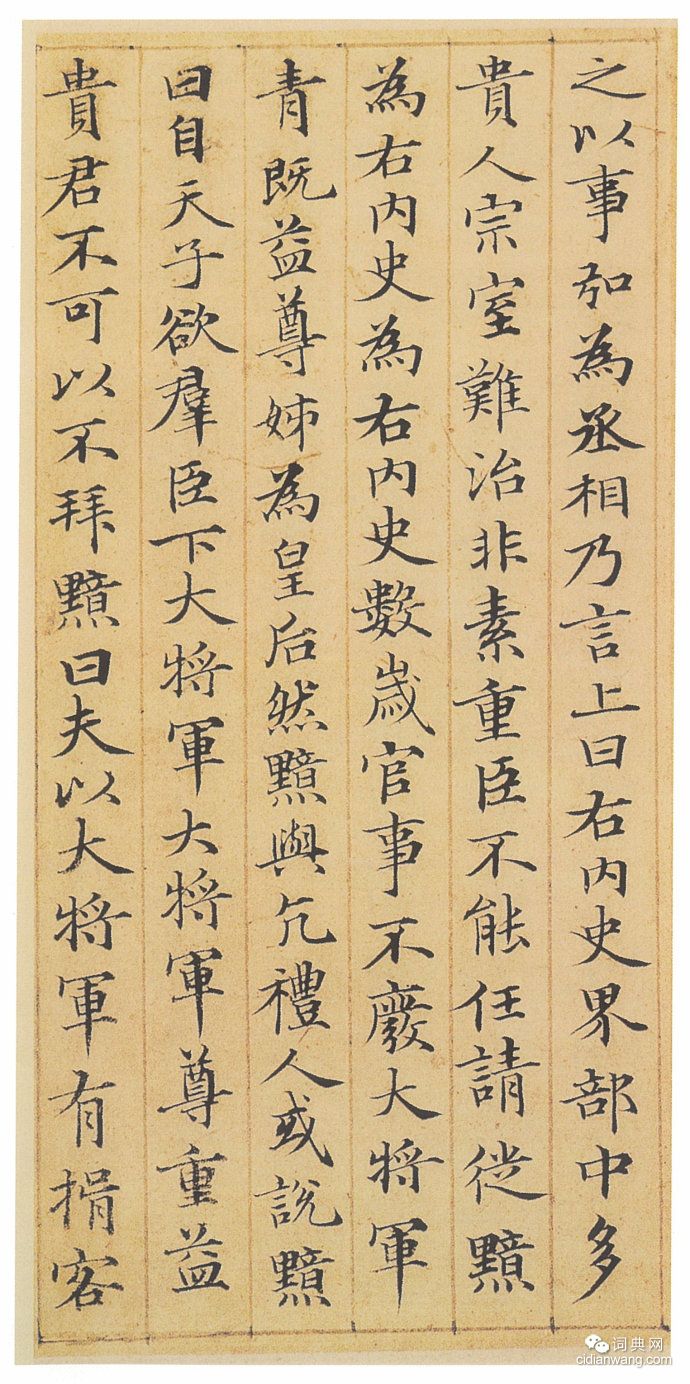 之以事弘為丞相乃言上曰右内史界部中多
貴人宗室難治非素重臣不能任請徙黯
為右内史為右内史數歳官事不廢大將軍
青既益尊姊為皇后然黯與亢禮人或説黯
曰自天子欲羣臣下大將軍大將軍尊重益
貴君不可以不拜黯曰夫以大將軍有揖客
词典网
cidianwang.com